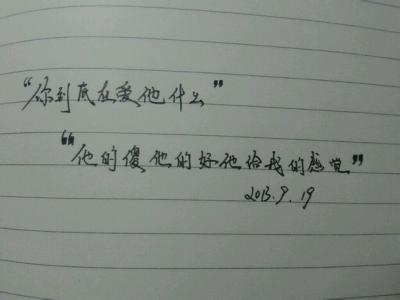 “你到底在爱他什么”
“他的傻他的好他给我的感觉”
2013.9.19